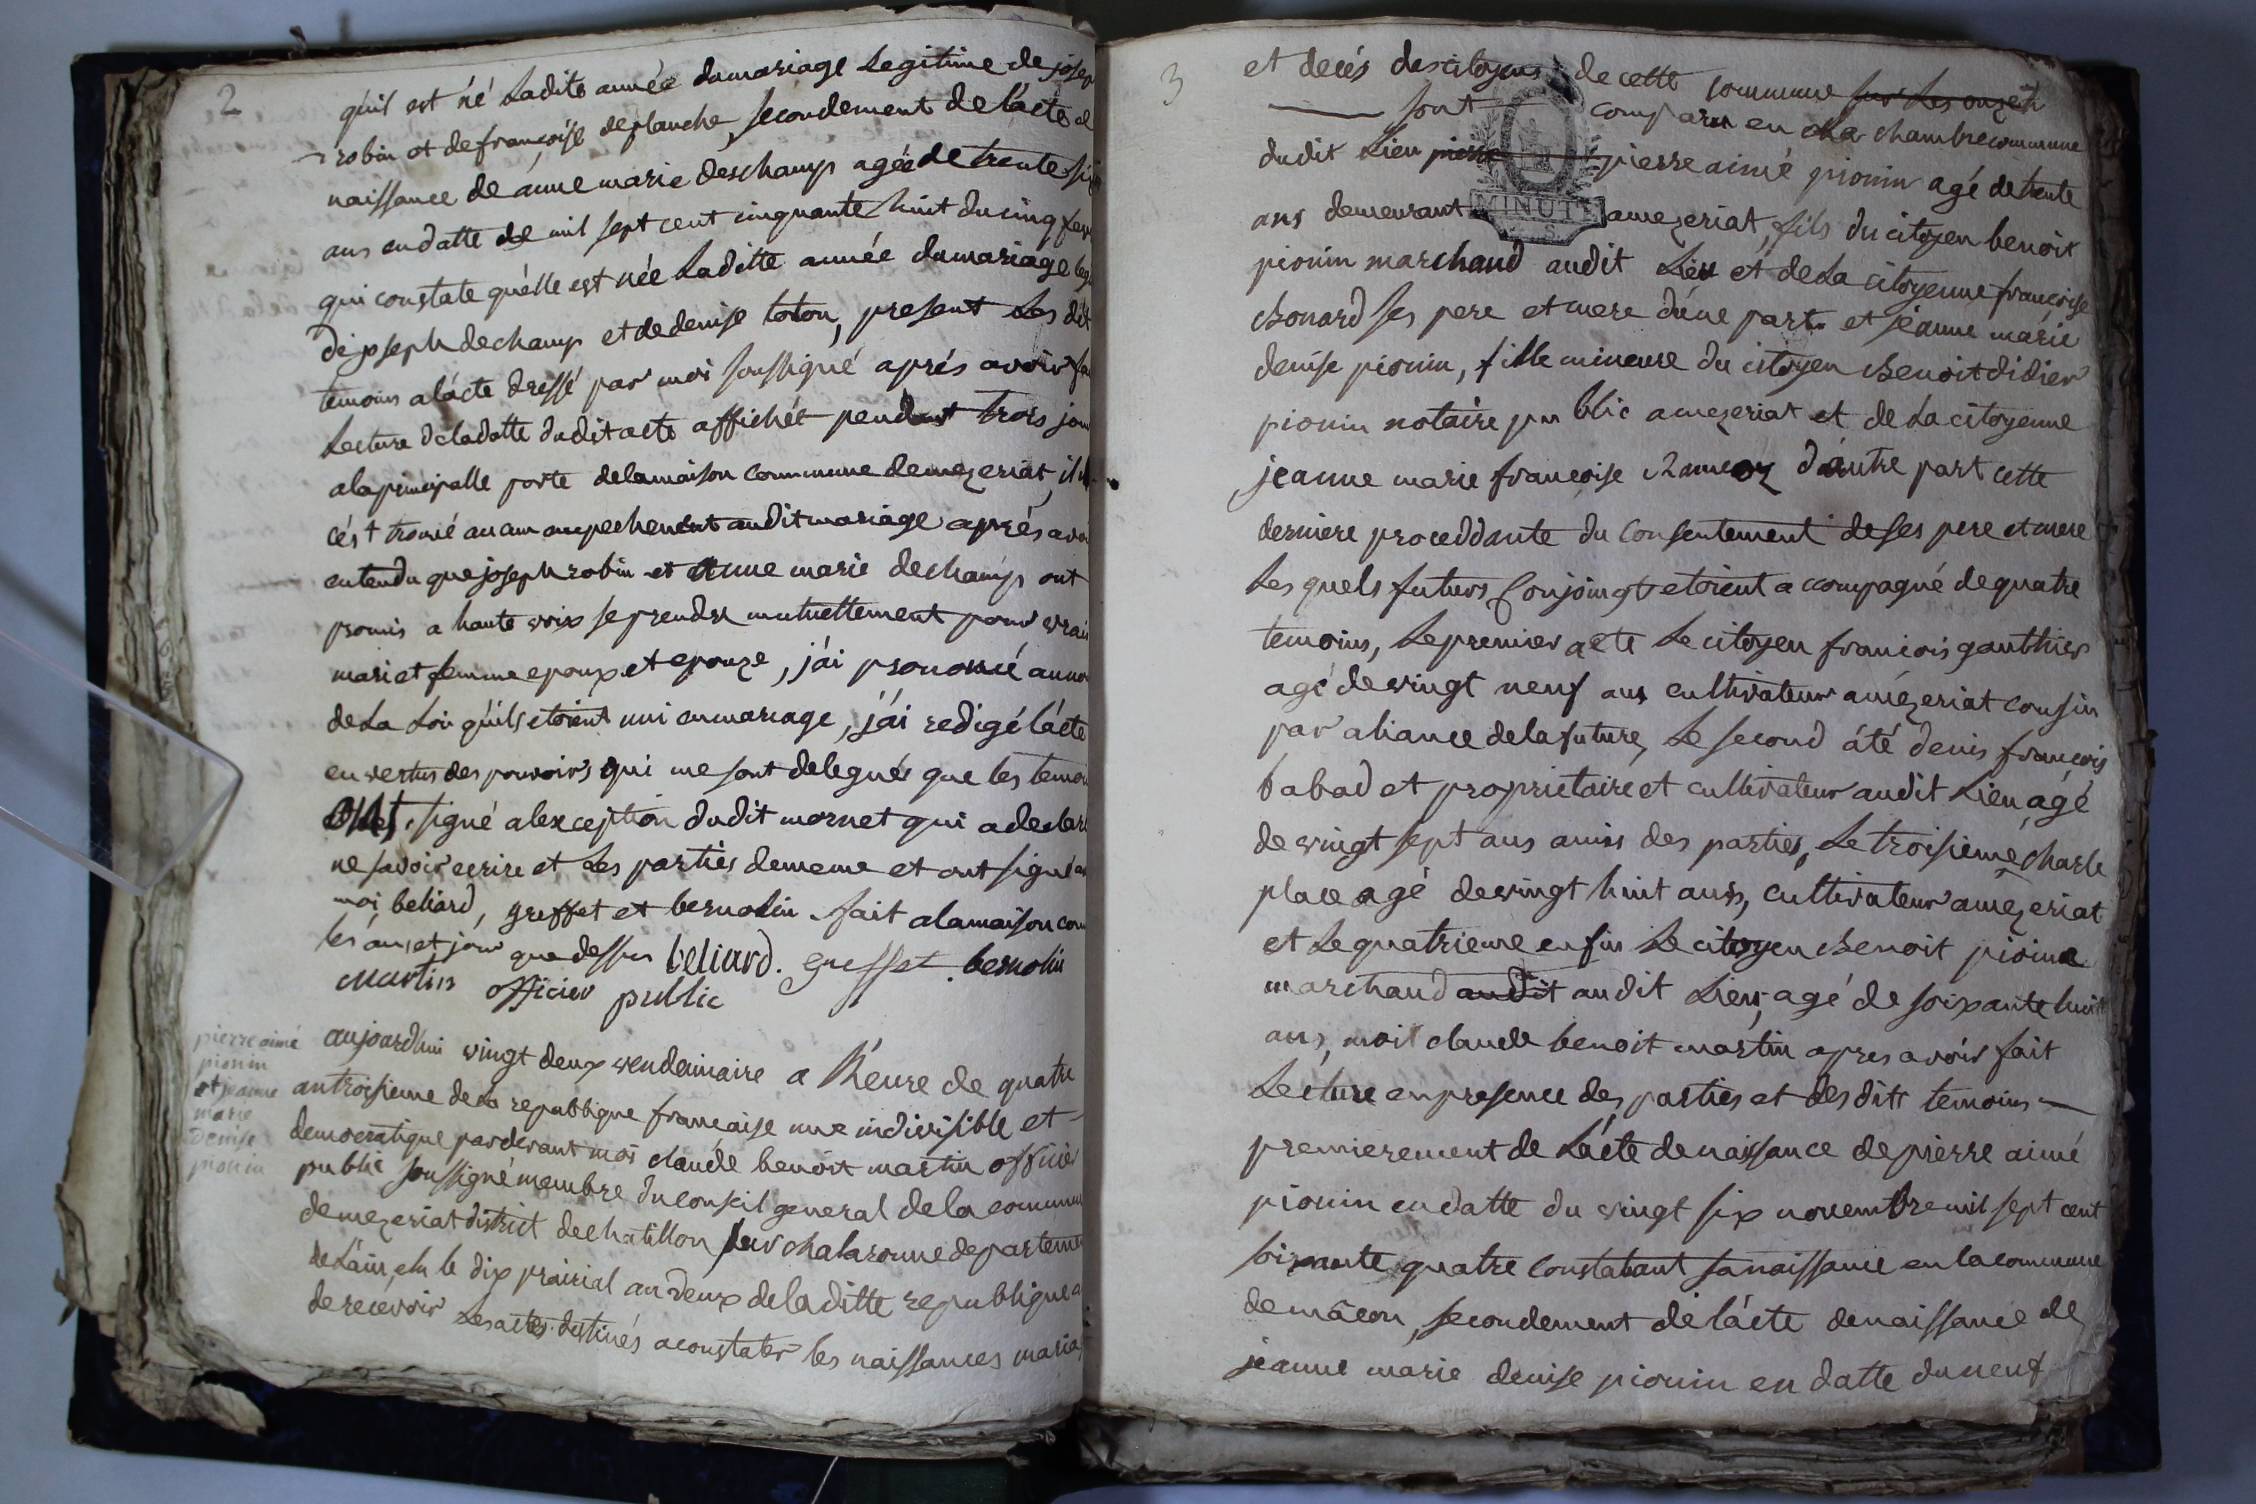 2
qu'il est né Ladite année dumariage Legitime de josep
robin et defrançoise deplanche, secondement de l'acte de
naissance de anne marie deschamp agée de trente six
ans endatte de mil sept cent cinquante huit du cinq fev
qui constate quélle est née Laditte année dumariage leg
de joseph dechamp et de denise toton, present Les dit
temoins alácte dressé par moi soussigné aprés avoir fai
Lecture deladatte dudit acte affichés pendant trois jour
alaprincipalle porte delamaison commune demezeriat, il
cés t trouvé aucun empechement audit mariage aprés avoi
entendu que joseph robin et anne marie dechamp ont
promis a haute voix se prendre mutuellement pour vrais
mari et femme epoux et epouze, j'ái prononcé aunom
de La Loi qu'ils etoient uni enmariage, j'ái redigé lácte
en vertus des pouvoirs qui me sont delegués que les temoi
ont signé alexception dudit mornet qui a declaré
ne savoir ecrire et Les parties dememe et ont signé a
moi beliard, greffet et bernolin fait alamaison com
les án et jour que dessus beliard. greffet bernolin
Martin officier public
pierre aimé
pionin
et jeanne
marie
denise
pionin
aujourdhui vingt deux vendemiaire a l'heure de quatre
antroisieme de La republique francaise une indivisible et
democratique pardevant moi claude benoit martin officier
public soussigné membre du conseil general de la commun
demezeriat district dechatillon sur chalaronne departeme
de Láin, elu le dix prairial an deux de laditte republique a
de recevoir Les actes destinés a constater les naissances maria
3
et decés descitoyens de cette commune sur Les onze h
sont comparu en La chambrecommune
dudit Lieu pierre pierre aimé pionin agé de trente
ans demeurant amezeriat, fils ducitoyen benoit
MINUTE
pionin marchand audit Lieu et deLa citoyenne françoise
Bonard ses pere et mere dúne part et jeanne marie
denise pionin, fille mineure du citoyen Benoit didier
pionin notaire public amezeriat et de La citoyenne
jeanne marie françoise d'autre part cette
derniere proceddante du consentement deses pere et mere
Les quels futurs Conjoingt etoient accompagné de quatre
temoins, Le premier a ete Le citoyen francois gauthier
agé devingt neuf ans cultivateur amezeriat cousin
par aliance delafuture, Le second áté denis françois
babad et propriétaire et cultivateur audit Lieu, agé
devingt sept ans amis des parties, Le troisieme charle
place agé devingt huit ans, cultivateur amezeriat
et Le quatrieme enfin Le citoyen Benoit pionin
marchand audit audit Lieu, agé de soixante huit
ans, moit claude benoit martin apres avoir fait
Lecture enpresence des parties et des ditt temoins
premierement de Lácte denaissance depierre aimé
pionin endatte du vingt six novembre mil sept cent
soixante quatre Constatant sanaissance enlacommune
demâcon, secondement de lácte denaissance de
jeanne marie denise pionin en datte duneuf